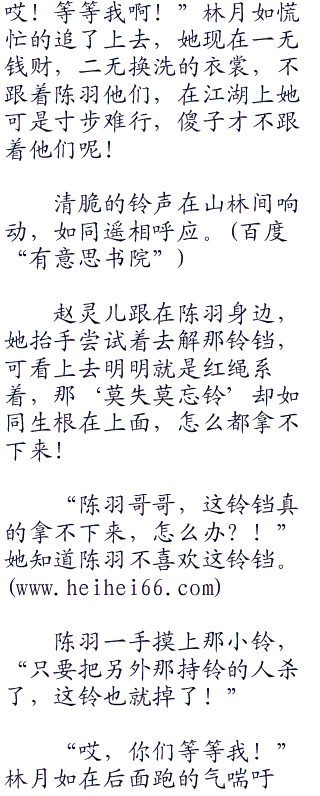 哎！等等我啊！”林月如慌
忙的追了上去，她现在一无
钱财，二无换洗的衣裳，不
跟着陈羽他们，在江湖上她
可是寸步难行，傻子才不跟
着他们呢！
清脆的铃声在山林间响
动，如同遥相呼应。(百度
“有意思书院”)
赵灵儿跟在陈羽身边，
她抬手尝试着去解那铃铛，
可看上去明明就是红绳系
着，那‘莫失莫忘铃’却如
同生根在上面，怎么都拿不
下来！
“陈羽哥哥，这铃铛真
的拿不下来，怎么办？！”
她知道陈羽不喜欢这铃铛。
(www.heihei66.com)
陈羽一手摸上那小铃，
“只要把另外那持铃的人杀
了，这铃也就掉了！”
“哎，你们等等我！”
林月如在后面跑的气喘吁